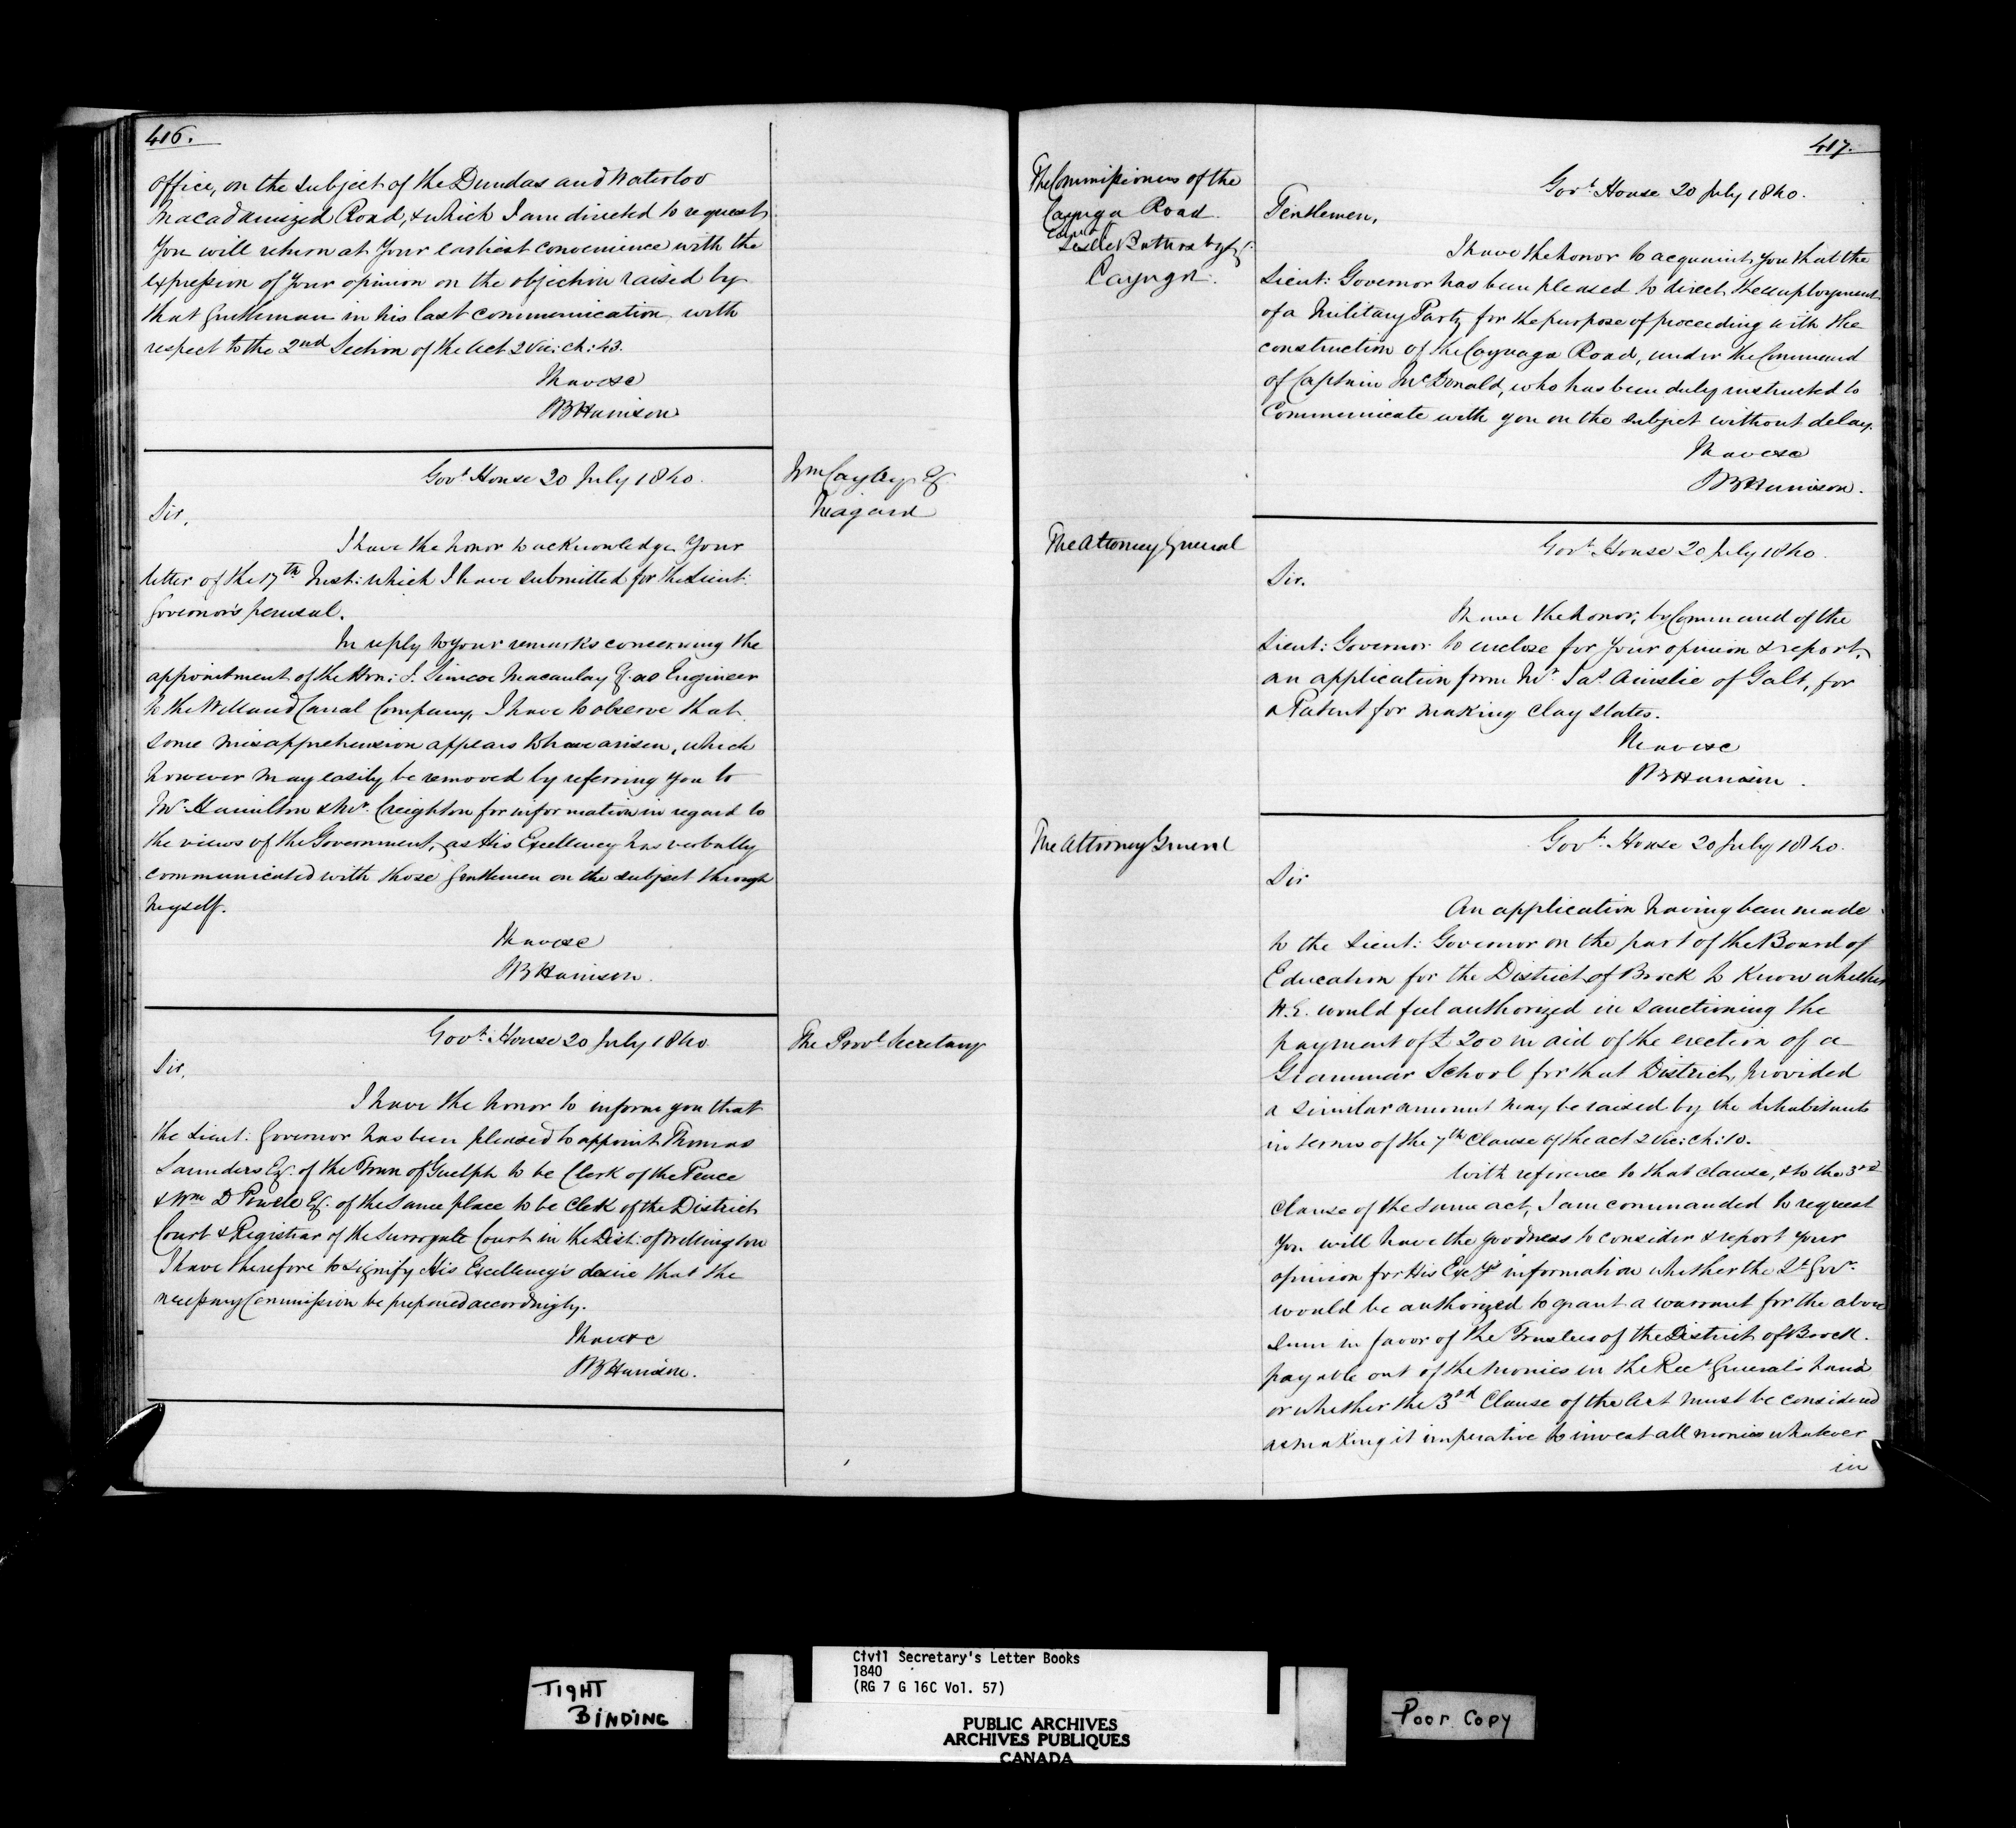 416.
office, on the subject of the Dundas and Waterloo
Macadamized Road, & which I am directed to request
You will return at Your earliest convenience with the
expression of Your opinion on the objection raised by
that Gentleman in his last communication, with
respect to the 2nd Section of the Act 2 Vic: ch: 43.
I have &c
SB Harrison
Govt. House 20 July 1840.
Wm Cayley Esq
Niagara
Sir,
I have the honor to acknowledge Your
letter of the 17th Inst: which I have submitted for the Lieut:
Governor's perusal.
In reply to your remarks concerning the
appointment of the Hon: J. Simcoe Macaulay Esq. as Engineer
to the Welland Canal Company, I have to observe that
some misapprehension appears to have arisen, which
however may easily be removed by referring you to
Mr. Hamilton & Mr. Creighton for information in regard to
the views of the Government, as His Excellency has verbally
communicated with those Gentlemen on the subject through
myself.
I have &c
SB Harrison.
Govt. House 20 July 1840.
The Provl Secretary
Sir,
I have the honor to inform you that
the Lieut: Governor has been pleased to appoint Thomas
Saunders Esq. of the Town of Guelph to be Clerk of the Peace
& Wm D Powell Esq. of the Same place to be Clerk of the District
Court & Registrar of the Surrogate Court in the Dist: of Wellington
I have therefore to signify His Excellency's desire that the
necessary Commission be prepared accordingly.
I have &c
SB Harrison.
417.
The Commissioners of the
Cayuga Road.
Cayuga.
Govt. House 20 July 1840.
Gentlemen,
I have the honor to acquaint you that the
Lieut: Governor has been pleased to direct the employment
of a Military Party for the purpose of proceeding with the
construction of the Cayuaga Road, under the Command
of Captain McDonald, who has been duly instructed to
Communicate with you on the subject without delay.
I have &c
SB Harrison.
The Attorney General
Govt. House 20 July 1840.
Sir.
I have the honor, by Command of the
Lieut: Governor to enclose for Your opinion & report,
an application from Mr. Jas. Ainslie of Galt, for
a Patent for making Clay slates.
I have &c
SB Harrison.
The Attorney General
Govt. House 20 July 1840.
Sir
An application having been made
to the Lieut: Governor on the part of the Board of
Education for the District of Brock to know whether
H.E. would feel authorized in sanctioning the
payment of £ 200 in aid of the erection of a
Grammar School for that District, provided
a similar amount may be raised by the Inhabitants
in terms of the 7th Clause of the act 2 Vic: ch: 10.
With reference to that clause, & to the 3rd
Clause of the same act, I am commanded to request
You will have the goodness to consider & report Your
opinion for His Excy's information whether the Lt Govr.
would be authorized to grant a warrant for the above
Sum in favor of the Trustees of the District of Brock.
payable out of the monies in the Rect General's hands
or whether the 3rd Clause of the Act must be considered
as making it imperative to invest all monies whatever
in
TIGHT
BINDING
Civil Secretary's Letter Books
1840
(RG 7 G 16C Vol. 57)
PUBLIC ARCHIVES
ARCHIVES PUBLIQUES
CANADA
Poor Copy